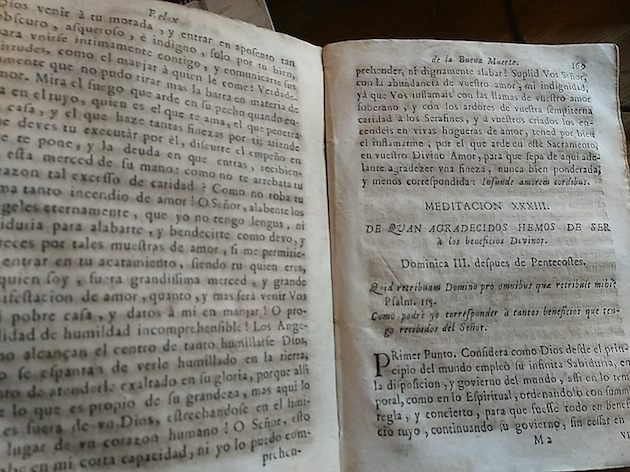 Relox
Dios venir à tu morada, y entrar en aposento tan
obscuro, asqueroso, è indigno, solo por tu bien,
para vnirse intimamente contigo, y comunicarte sus
como el manjar à quien le come! Verdade-
mente que no pudo tirar mas la barra en materia de
mor. Mira el fuego que arde en su pecho quando en-
en el tuyo, quien es el que te ama, el que penetra
casa, y el que haze tantas finezas por ti; atiende
deves tu executàr por èl, discurre el empeño en
te pone, y la deuda en que entras, recibien-
esta merced de su mano: como no te arrebata tu
razon tal excesso de caridad? Como no roba tu
ma tanto incendio de amor! O Señor, alabente los
geles eternamente, que yo no tengo lengua, ni
biduria para alabarte, y bendecirte como devo, y
reces por tales muestras de amor, si me permitie-
entrar en tu acatamiento, siendo tu quien eres,
quien soy, fuera grandissima merced, y grande
festacion de amor, quanto, y mas serà venir Vos
pobre casa, y datos à mi en manjar! O pro-
lidad de humildad incomprehensible! Los Ange-
no alcançan el centro de tanto humillarse Dios,
se espantan de verle humillado en la tierra,
to de atenderle exaltado en su gloria, porque alli
e lo que es propio de su grandeza, mas aqui lo
es fuera de vn Dios, estrechandose en el limi-
lugar de vn corazon humano! O Señor, esto
abe en mi corta capacidad, ni yo lo puedo com-
prehen-
de la Buena Muerte. 169
prehender, ni dignamente alabar! Suplid Vos Señor,
con la abundancia de vuestro amor, mi indignidad,
yà que Vos inflamais con las llamas de vuestro amor
soberano, y con los ardores de vuestra sempiterna
caridad à los Serafines, y à vuestros criados los en-
cendeis en vivas hogueras de amor, tened por bien
el inflamarme, por el que arde en este Sacramento,
en vuestro Divino Amor, para que sepa de aqui ade-
lante agradezer vna fineza, nunca bien ponderada,
y menos correspondida: Infunde amorem cordibus.
MEDITACION XXXIII.
DE QUAN AGRADECIDOS HEMOS DE SER
à los beneficios Divinos.
Dominica III. despues de Pentecostes.
Quid retribuam Domino pro omnibus quæ retribuit mihi?
Psalm. 115.
Como podrè yo corresponder à tantos beneficios que ten-
go recibidos del Señor.
PRimer Punto. Considera como Dios desde el prin-
cipio del mundo empleo su infinita Sabiduria, en
la disposicion, y govierno del mundo, assi en lo tem-
poral, como en lo Espiritual, ordenandolo con summa
regla, y concierto, para que fuesse todo en benefi-
cio tuyo, continuando su govierno, sin cessar en
M 2